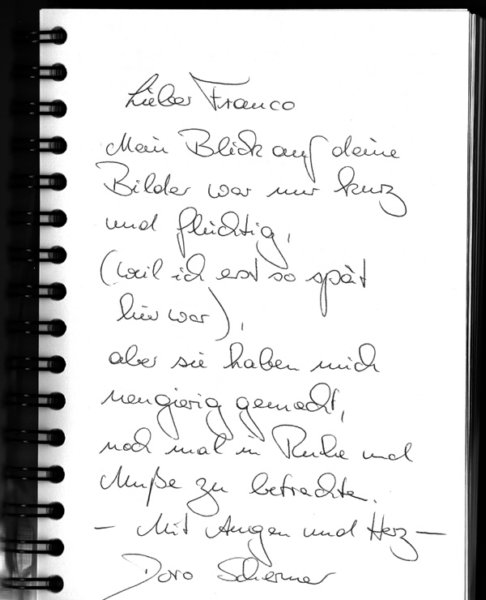 Lieber Franco
Mein Blick auf deine
Bilder war nur kurz
und flüchtig,
(weil ich erst so spät
hier war),
aber sie haben mich
neugierig gemacht,
noch mal in Ruhe und
Muße zu betrachten.
– Mit Augen und Herz –
Doro Schermer